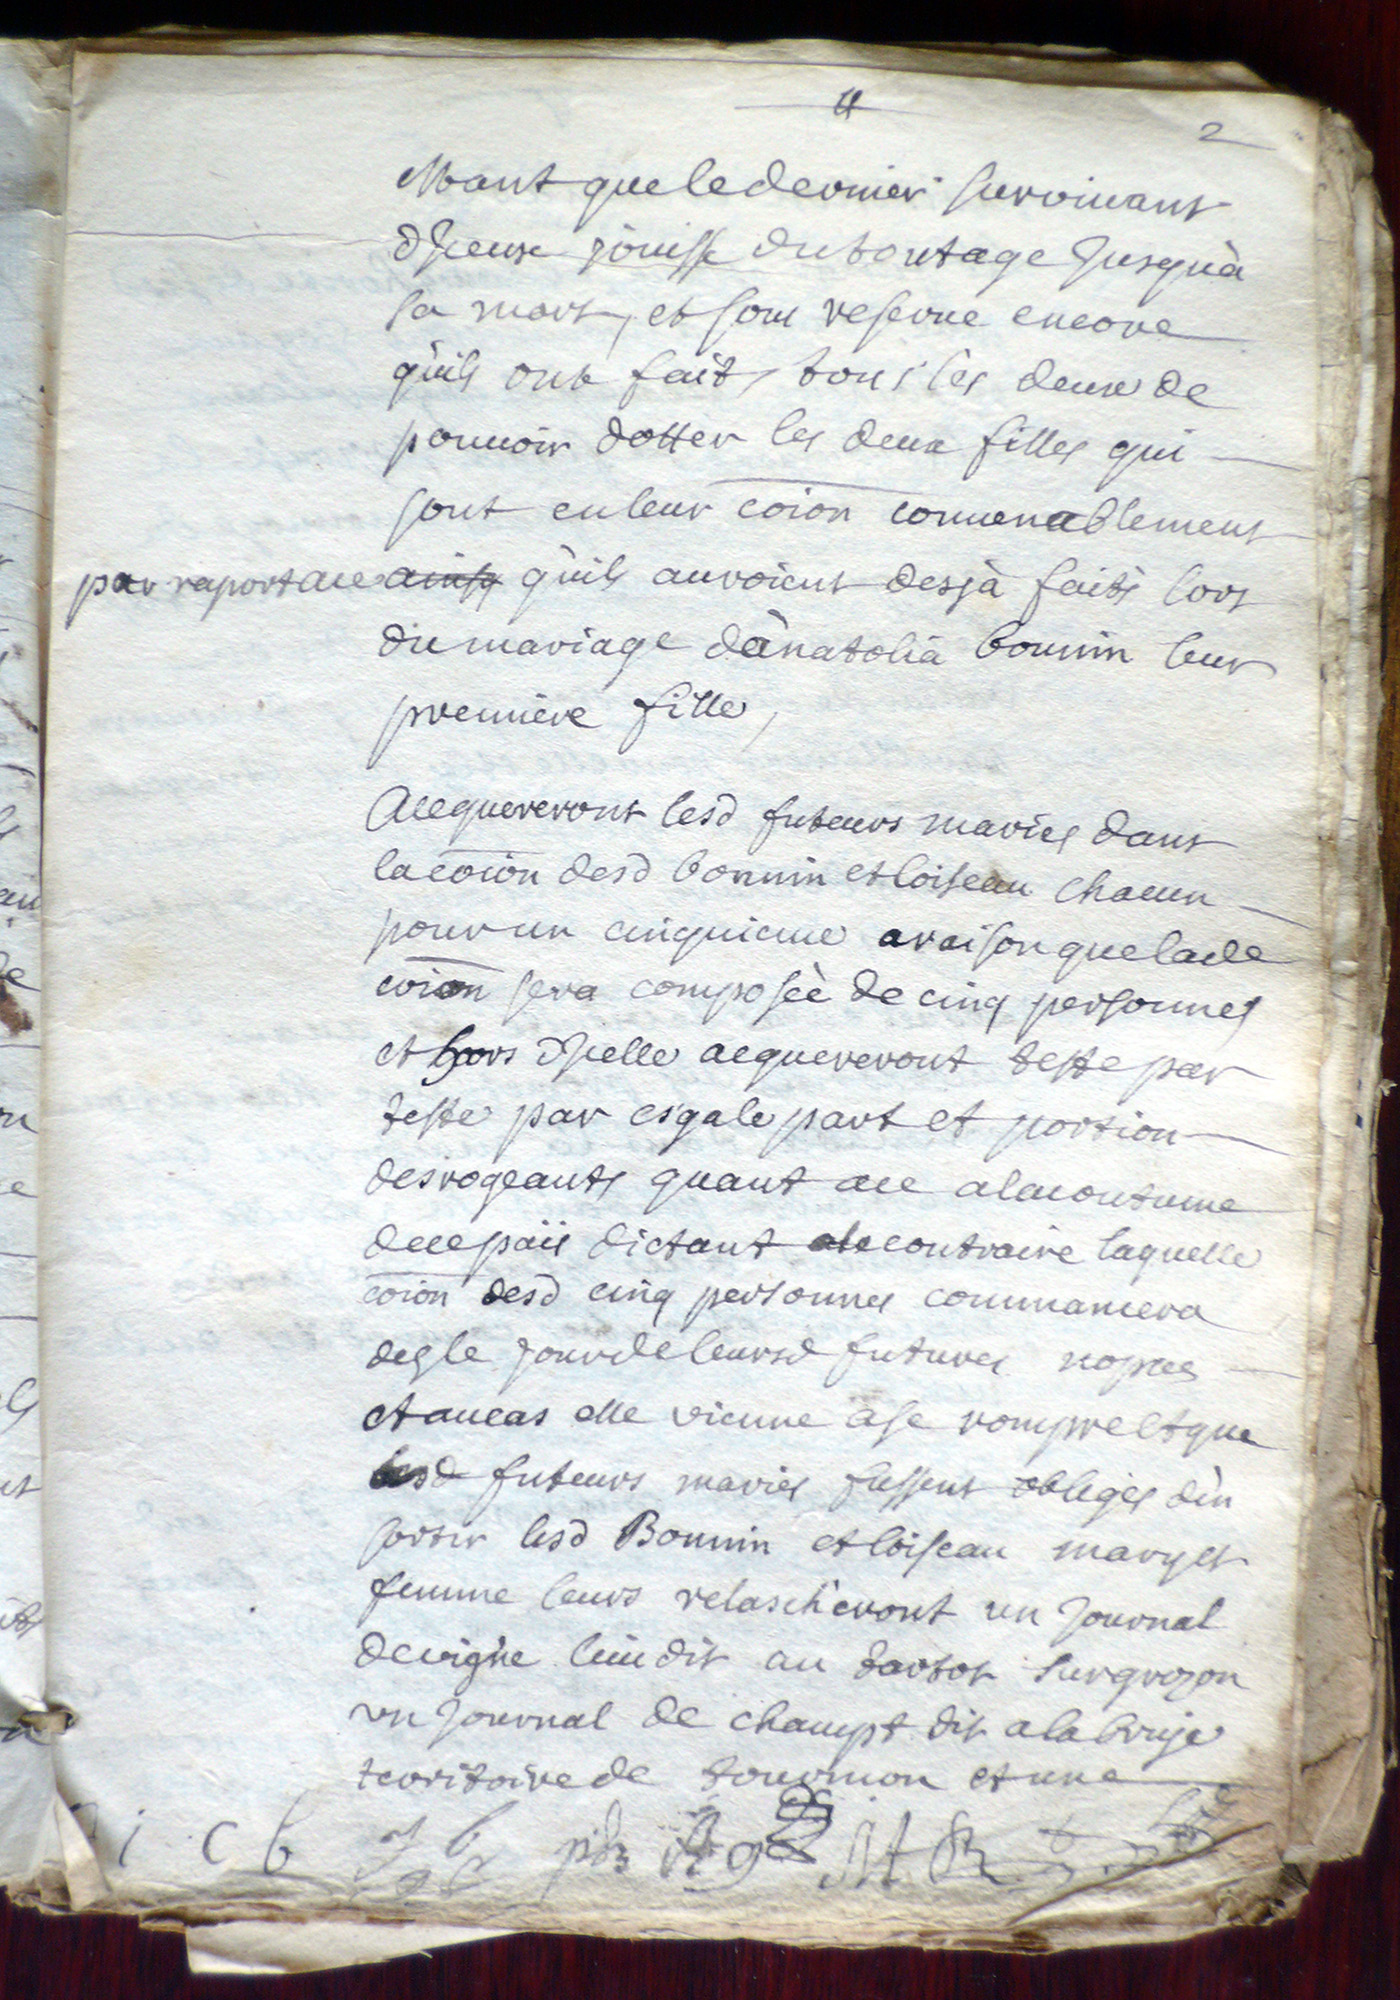 2
voulant que le dernier survivant
d'Jceux jouisse du toutage Jusqu'à
sa mort, et sous reserve encore
qu'ils ont fait, tous les deux de
pouvoir dotter les deux filles qui
sont en leur coion convenablement
par raport a ce ainsy qu'ils auroient desjà faits lors
du mariage d'anatolia bonnin leur
premiere fille,
Acquereront lesd futeurs mariés dans
la coion desd bonnin et loiseau chacun
pour un cinquieme a raison que lade
coion sera composèe de cinq personnes
et hors d'Jcelle acquereront teste par
teste par esgale part et portion
desrogeants quant a ce a la coutume
de ce païs dictant le contraire laquelle
coion desd cinq personnes commancera
des le jour de leursd futures nopces
et au cas elle vienne a se rompre et que
lesd futeurs mariés fussent obligés d'en
sortir lesd Bonnin et loiseau mary et
femme leurs relascheront un Journal
de vigne lieudit au tartot sur grozon
un Journal de champt dit a la bruje
territoire de tourmon et une